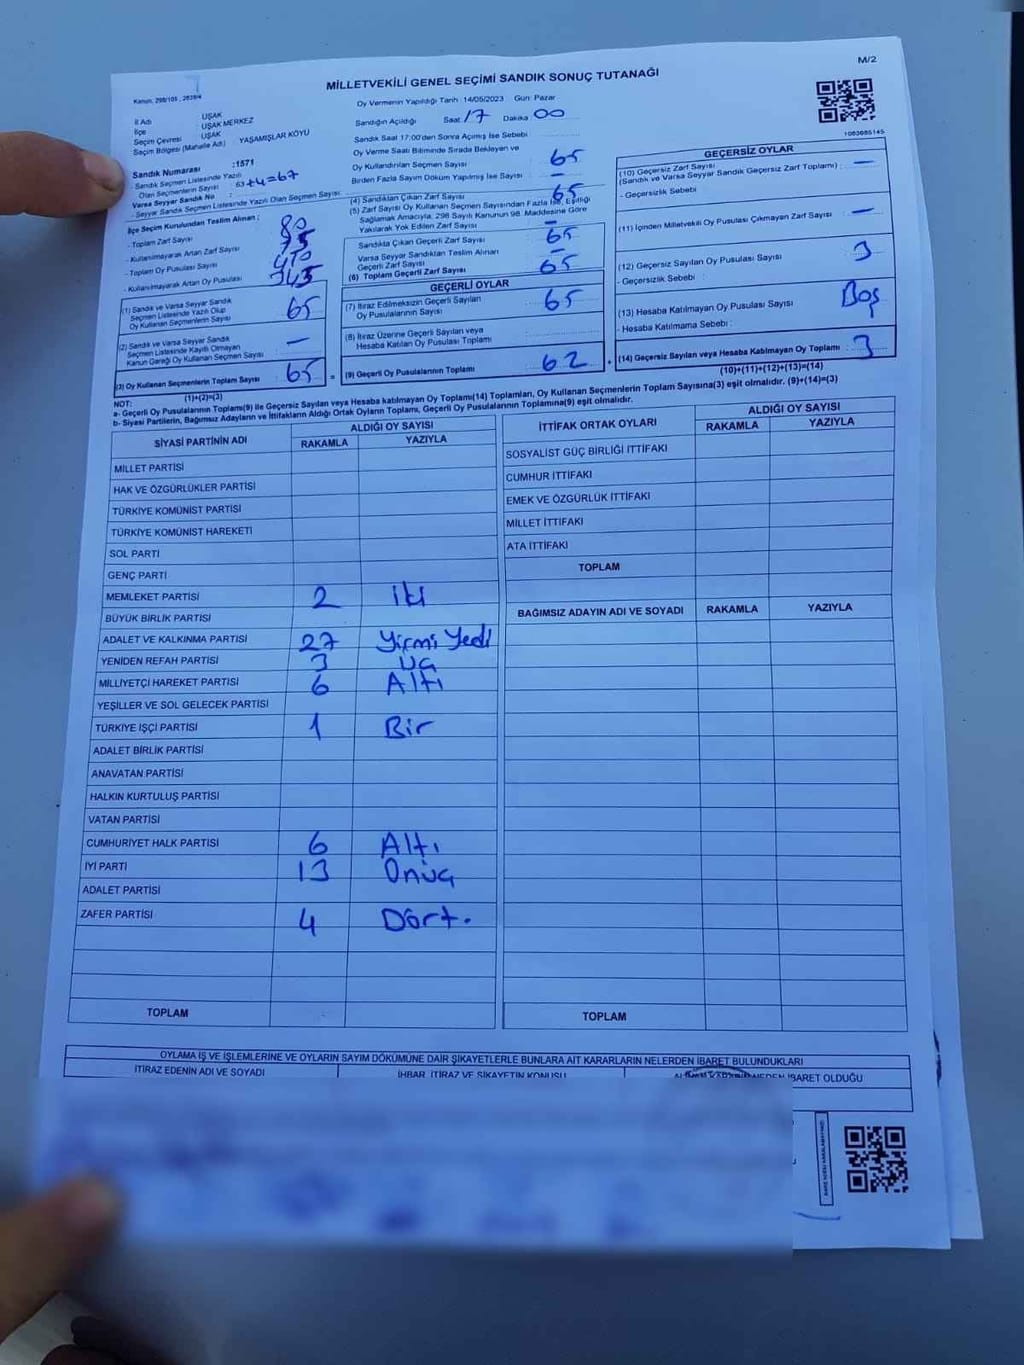 M/2
Kanun, 298/105 , 2839/4
MİLLETVEKİLİ GENEL SEÇİMİ SANDIK SONUÇ TUTANAĞI
Oy Vermenin Yapıldığı Tarih : 14/05/2023 Gün: Pazar
İl Adı : UŞAK
İlçe : UŞAK MERKEZ
Seçim Çevresi : UŞAK
Seçim Bölgesi (Mahalle Adı) : YAŞAMIŞLAR KÖYÜ
Sandık Numarası :1571
- Sandık Seçmen Listesinde Yazılı
Olan Seçmenlerin Sayısı : 63+4=67
Varsa Seyyar Sandık No :
- Seyyar Sandık Seçmen Listesinde Yazılı Olan Seçmen Sayısı:
İlçe Seçim Kurulundan Teslim Alınan :
- Toplam Zarf Sayısı 80
- Kullanılmayarak Artan Zarf Sayısı
- Toplam Oy Pusulası Sayısı
- Kullanılmayarak Artan Oy Pusulası 345
(1) Sandık ve Varsa Seyyar Sandık
Seçmen Listesinde Yazılı Olup
Oy Kullanan Seçmenlerin Sayısı 65
(2) Sandık ve Varsa Seyyar Sandık
Seçmen Listesinde Kayıtlı Olmayan
Kanun Gereği Oy Kullanan Seçmen Sayısı : —
(3) Oy Kullanan Seçmenlerin Toplam Sayısı 65
(1)+(2)=(3)
Sandığın Açıldığı Saat: 17 Dakika: 00
Sandık Saat 17:00'den Sonra Açılmış İse Sebebi :
Oy Verme Saati Bitiminde Sırada Bekleyen ve
Oy Kullandırılan Seçmen Sayısı 65
Birden Fazla Sayım Döküm Yapılmış İse Sayısı : —
(4) Sandıktan Çıkan Zarf Sayısı 65
(5) Zarf Sayısı Oy Kullanan Seçmen Sayısından Fazla İse, Eşitliği
Sağlamak Amacıyla, 298 Sayılı Kanunun 98. Maddesine Göre
Yakılarak Yok Edilen Zarf Sayısı —
Sandıkta Çıkan Geçerli Zarf Sayısı 65
Varsa Seyyar Sandıktan Teslim Alınan
Geçerli Zarf Sayısı —
(6) Toplam Geçerli Zarf Sayısı 65
GEÇERLİ OYLAR
(7) İtiraz Edilmeksizin Geçerli Sayılan
Oy Pusulalarının Sayısı 65
(8) İtiraz Üzerine Geçerli Sayılan veya
Hesaba Katılan Oy Pusulası Toplamı
(9) Geçerli Oy Pusulalarının Toplamı 62
1083885145
GEÇERSİZ OYLAR
(10) Geçersiz Zarf Sayısı
(Sandık ve Varsa Seyyar Sandık Geçersiz Zarf Toplamı) : —
- Geçersizlik Sebebi
(11) İçinden Milletvekili Oy Pusulası Çıkmayan Zarf Sayısı —
(12) Geçersiz Sayılan Oy Pusulası Sayısı 3
- Geçersizlik Sebebi :
(13) Hesaba Katılmayan Oy Pusulası Sayısı Boş
- Hesaba Katılmama Sebebi :
(14) Geçersiz Sayılan veya Hesaba Katılmayan Oy Toplamı : 3
(10)+(11)+(12)+(13)=(14)
NOT:
a- Geçerli Oy Pusulalarının Toplamı(9) ile Geçersiz Sayılan veya Hesaba katılmayan Oy Toplamı(14) Toplamları, Oy Kullanan Seçmenlerin Toplam Sayısına(3) eşit olmalıdır. (9)+(14)=(3)
b- Siyasi Partilerin, Bağımsız Adayların ve İttifakların Aldığı Ortak Oyların Toplamı, Geçerli Oy Pusulalarının Toplamına(9) eşit olmalıdır.
SİYASİ PARTİNİN ADI ALDIĞI OY SAYISI
RAKAMLA YAZIYLA
MİLLET PARTİSİ
HAK VE ÖZGÜRLÜKLER PARTİSİ
TÜRKİYE KOMÜNİST PARTİSİ
TÜRKİYE KOMÜNİST HAREKETİ
SOL PARTİ
GENÇ PARTİ
MEMLEKET PARTİSİ 2 iki
BÜYÜK BİRLİK PARTİSİ
ADALET VE KALKINMA PARTİSİ 27 Yirmi Yedi
YENİDEN REFAH PARTİSİ 3 Üç
MİLLİYETÇİ HAREKET PARTİSİ 6 Altı
YEŞİLLER VE SOL GELECEK PARTİSİ
TÜRKİYE İŞÇİ PARTİSİ 1 Bir
ADALET BİRLİK PARTİSİ
ANAVATAN PARTİSİ
HALKIN KURTULUŞ PARTİSİ
VATAN PARTİSİ
CUMHURİYET HALK PARTİSİ 6 Altı
İYİ PARTİ 13 Onüç
ADALET PARTİSİ
ZAFER PARTİSİ 4 Dört.
TOPLAM
İTTİFAK ORTAK OYLARI ALDIĞI OY SAYISI
RAKAMLA YAZIYLA
SOSYALİST GÜÇ BİRLİĞİ İTTİFAKI
CUMHUR İTTİFAKI
EMEK VE ÖZGÜRLÜK İTTİFAKI
MİLLET İTTİFAKI
ATA İTTİFAKI
TOPLAM
BAĞIMSIZ ADAYIN ADI VE SOYADI RAKAMLA YAZIYLA
TOPLAM
OYLAMA İŞ VE İŞLEMLERİNE VE OYLARIN SAYIM DÖKÜMÜNE DAİR ŞİKAYETLERLE BUNLARA AİT KARARLARIN NELERDEN İBARET BULUNDUKLARI
İTİRAZ EDENİN ADI VE SOYADI
İHBAR, İTİRAZ VE ŞİKAYETİN KONUSU
NEDEN İBARET OLDUĞU